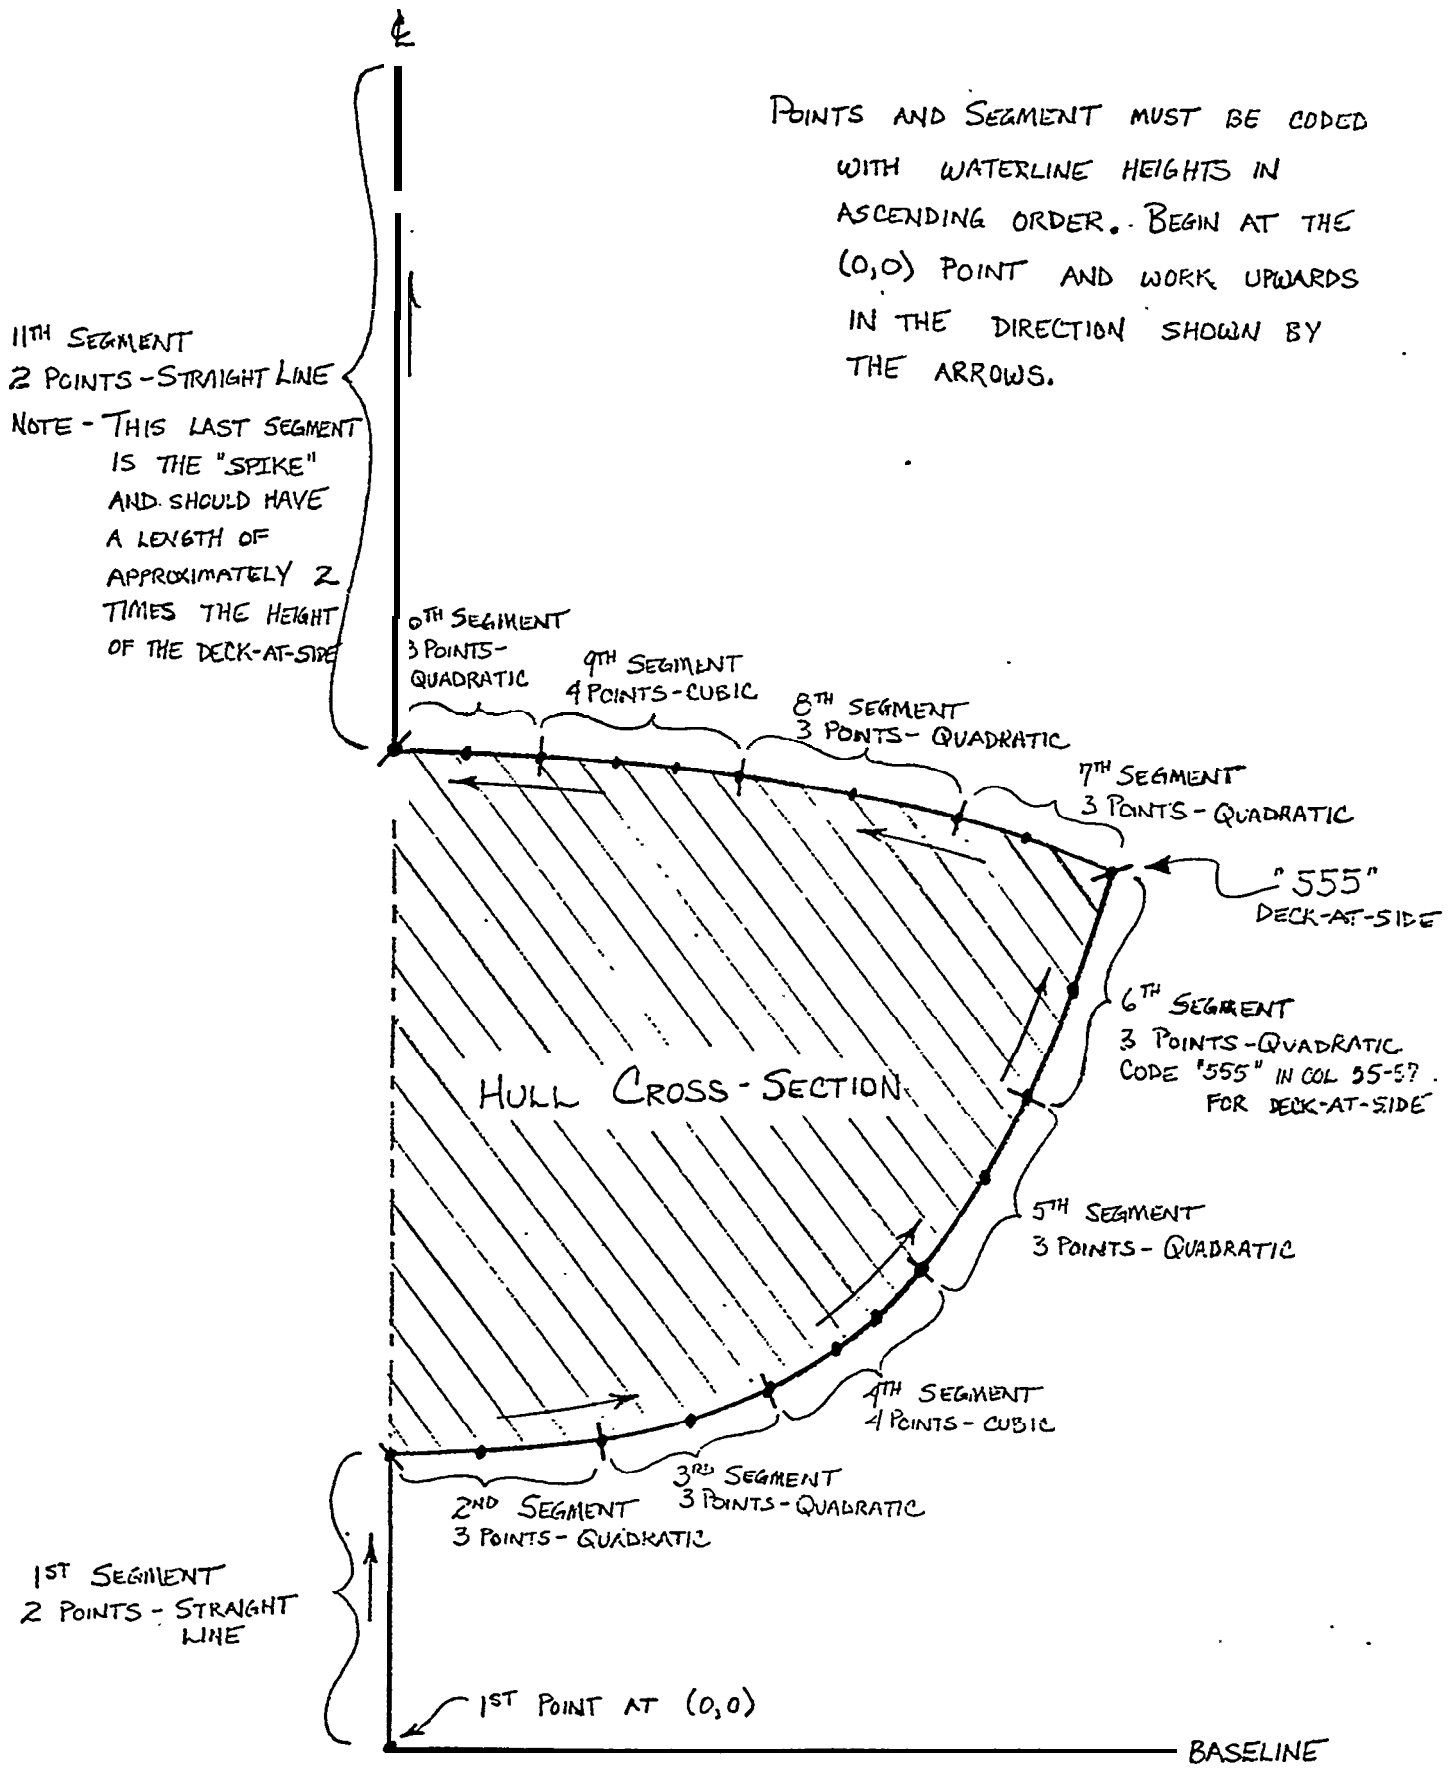 ℄
POINTS AND SEGMENT MUST BE CODED
WITH WATERLINE HEIGHTS IN
ASCENDING ORDER. BEGIN AT THE
(0,0) POINT AND WORK UPWARDS
IN THE DIRECTION SHOWN BY
THE ARROWS.
11TH SEGMENT
2 POINTS - STRAIGHT LINE
NOTE - THIS LAST SEGMENT
IS THE "SPIKE"
AND SHOULD HAVE
A LENGTH OF
APPROXIMATELY 2
TIMES THE HEIGHT
OF THE DECK-AT-SIDE
0TH SEGMENT
3 POINTS-
QUADRATIC
9TH SEGMENT
4 POINTS-CUBIC
8TH SEGMENT
3 POINTS- QUADRATIC
7TH SEGMENT
3 POINTS- QUADRATIC
"555"
DECK-AT-SIDE
6TH SEGMENT
3 POINTS-QUADRATIC
CODE "555" IN COL 55-57
FOR DECK-AT-SIDE
HULL CROSS-SECTION
5TH SEGMENT
3 POINTS- QUADRATIC
4TH SEGMENT
4 POINTS- CUBIC
3RD SEGMENT
3 POINTS-QUADRATIC
2ND SEGMENT
3 POINTS- QUADRATIC
1ST SEGMENT
2 POINTS - STRAIGHT
LINE
1ST POINT AT (0,0)
BASELINE